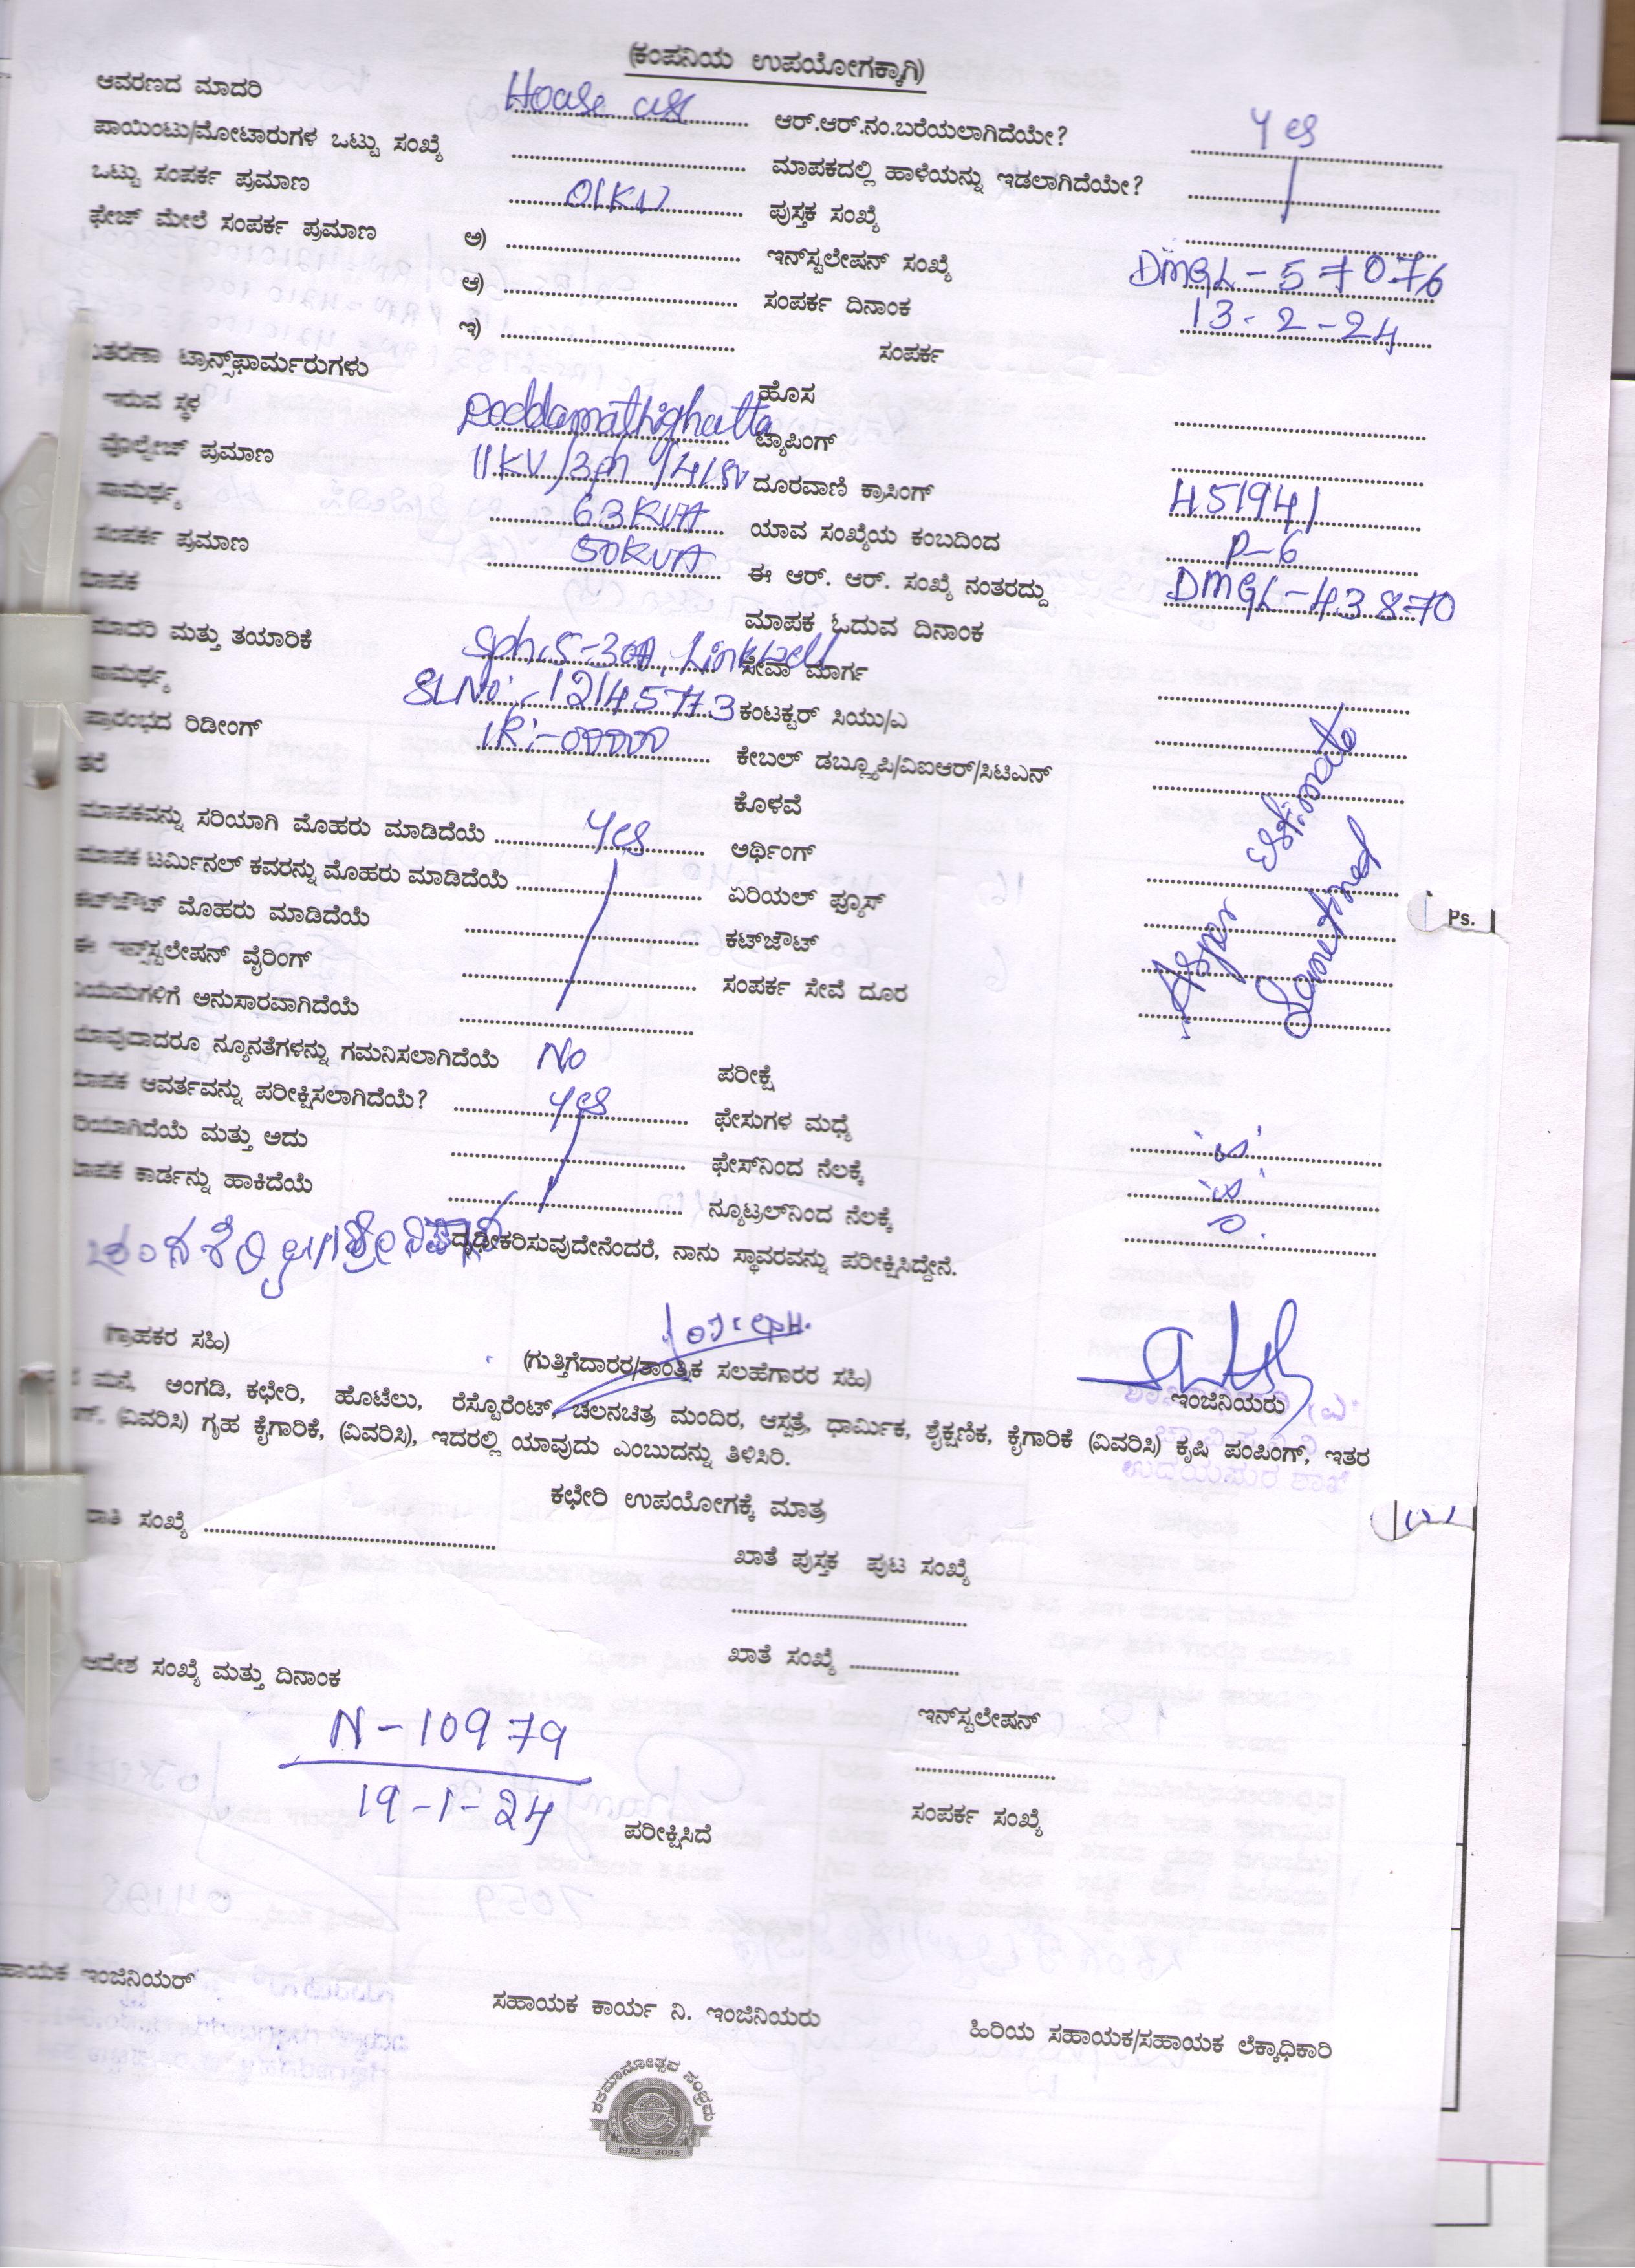 (ಕಂಪನಿಯ ಉಪಯೋಗಕ್ಕಾಗಿ)
ಆವರಣದ ಮಾದರಿ House ಆರ್.ಆರ್.ನಂ.ಬರೆಯಲಾಗಿದೆಯೇ? yes
ಪಾಯಿಂಟು/ಮೋಟಾರುಗಳ ಒಟ್ಟು ಸಂಖ್ಯೆ ಮಾಪಕದಲ್ಲಿ ಹಾಳೆಯನ್ನು ಇಡಲಾಗಿದೆಯೇ?
ಒಟ್ಟು ಸಂಪರ್ಕ ಪ್ರಮಾಣ 01KW ಪುಸ್ತಕ ಸಂಖ್ಯೆ
ಫೇಜ್ ಮೇಲೆ ಸಂಪರ್ಕ ಪ್ರಮಾಣ ಅ) ಇನ್‌ಸ್ಟಲೇಷನ್ ಸಂಖ್ಯೆ DMGL-57076
ಆ) ಸಂಪರ್ಕ ದಿನಾಂಕ 13-2-24
ಇ) ಸಂಪರ್ಕ
ತರಣಾ ಟ್ರಾನ್ಸ್‌ಫಾರ್ಮರುಗಳು ಹೊಸ
ಇರುವ ಸ್ಥಳ Doddamathighatta ಟ್ಯಾಪಿಂಗ್
ವೋಲ್ಟೇಜ್ ಪ್ರಮಾಣ 11KV/3ph ದೂರವಾಣಿ ಕ್ರಾಸಿಂಗ್ H51941
ಸಾಮರ್ಥ್ಯ 63KVA ಯಾವ ಸಂಖ್ಯೆಯ ಕಂಬದಿಂದ P-6
ಸಂಪರ್ಕ ಪ್ರಮಾಣ 50KVA ಈ ಆರ್. ಆರ್. ಸಂಖ್ಯೆ ನಂತರದ್ದು DMGL-43870
ಮಾಪಕ ಮಾಪಕ ಓದುವ ದಿನಾಂಕ
ಮಾದರಿ ಮತ್ತು ತಯಾರಿಕೆ 5-30A, Linkwell ಸೇವಾ ಮಾರ್ಗ
ಸಾಮರ್ಥ್ಯ SL No:- 12145773 ಕಂಟಕ್ಟರ್ ಸಿಯು/ಎ
ಪ್ರಾರಂಭದ ರಿಡೀಂಗ್ IR:-00000 ಕೇಬಲ್ ಡಬ್ಲ್ಯೂಪಿ/ವಿಐಆರ್/ಸಿಟಿಎನ್
ತರೆ ಕೊಳವೆ
ಮಾಪಕವನ್ನು ಸರಿಯಾಗಿ ಮೊಹರು ಮಾಡಿದೆಯೆ yes ಅರ್ಥಿಂಗ್
ಮಾಪಕ ಟರ್ಮಿನಲ್ ಕವರನ್ನು ಮೊಹರು ಮಾಡಿದೆಯೆ ಏರಿಯಲ್ ಫ್ಯೂಸ್
ಕಟ್‌ಔಟ್ ಮೊಹರು ಮಾಡಿದೆಯೆ ಕಟ್‌ಔಟ್
ಈ ಇನ್ಸ್‌ಸ್ಟಲೇಷನ್ ವೈರಿಂಗ್ ಸಂಪರ್ಕ ಸೇವೆ ದೂರ
ಯಮಗಳಿಗೆ ಅನುಸಾರವಾಗಿದೆಯೆ
As per estimate
Sanctioned
ಯಾವುದಾದರೂ ನ್ಯೂನತೆಗಳನ್ನು ಗಮನಿಸಲಾಗಿದೆಯೆ No ಪರೀಕ್ಷೆ
ಮಾಪಕ ಆವರ್ತವನ್ನು ಪರೀಕ್ಷಿಸಲಾಗಿದೆಯೆ? yes ಫೇಸುಗಳ ಮಧ್ಯೆ
ರಿಯಾಗಿದೆಯೆ ಮತ್ತು ಅದು ಫೇಸ್‌ನಿಂದ ನೆಲಕ್ಕೆ
ಮಾಪಕ ಕಾರ್ಡನ್ನು ಹಾಕಿದೆಯೆ ನ್ಯೂಟ್ರಲ್‌ನಿಂದ ನೆಲಕ್ಕೆ
ದೃಢೀಕರಿಸುವುದೇನೆಂದರೆ, ನಾನು ಸ್ಥಾವರವನ್ನು ಪರೀಕ್ಷಿಸಿದ್ದೇನೆ.
(ಗ್ರಾಹಕರ ಸಹಿ) (ಗುತ್ತಿಗೆದಾರರ/ತಾಂತ್ರಿಕ ಸಲಹೆಗಾರರ ಸಹಿ) ಇಂಜಿನಿಯರು
ಮನೆ, ಅಂಗಡಿ, ಕಛೇರಿ, ಹೊಟೆಲು, ರೆಸ್ಟೊರೆಂಟ್, ಚಲನಚಿತ್ರ ಮಂದಿರ, ಆಸ್ಪತ್ರೆ, ಧಾರ್ಮಿಕ, ಶೈಕ್ಷಣಿಕ, ಕೈಗಾರಿಕೆ (ವಿವರಿಸಿ) ಕೃಷಿ ಪಂಪಿಂಗ್, ಇತರ
(ವಿವರಿಸಿ) ಗೃಹ ಕೈಗಾರಿಕೆ, (ವಿವರಿಸಿ), ಇದರಲ್ಲಿ ಯಾವುದು ಎಂಬುದನ್ನು ತಿಳಿಸಿರಿ.
ಉದಯಪುರ ಶಾಖೆ
ಕಛೇರಿ ಉಪಯೋಗಕ್ಕೆ ಮಾತ್ರ
ಸಂಖ್ಯೆ ಖಾತೆ ಪುಸ್ತಕ ಪುಟ ಸಂಖ್ಯೆ
ಖಾತೆ ಸಂಖ್ಯೆ
ಆದೇಶ ಸಂಖ್ಯೆ ಮತ್ತು ದಿನಾಂಕ
ಇನ್‌ಸ್ಟಲೇಷನ್
N-10979
19-1-24
ಪರೀಕ್ಷಿಸಿದೆ ಸಂಪರ್ಕ ಸಂಖ್ಯೆ
ಹಾಯಕ ಇಂಜಿನಿಯರ್ ಸಹಾಯಕ ಕಾರ್ಯ ನಿ. ಇಂಜಿನಿಯರು ಹಿರಿಯ ಸಹಾಯಕ/ಸಹಾಯಕ ಲೆಕ್ಕಾಧಿಕಾರಿ
ಶತಮಾನೋತ್ಸವ ಸಂಭ್ರಮ
1922 - 2022
Ps.